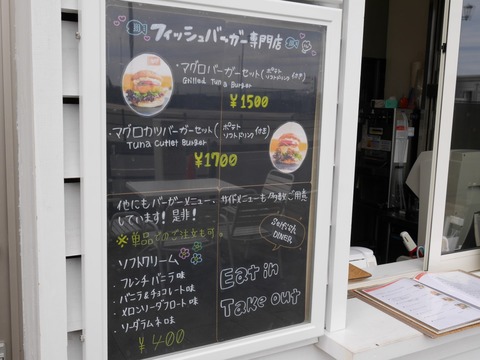 フィッシュバーガー専門店
・マグロバーガーセット(ポテト ソフトドリンク 付き)
Grilled Tuna Burger
¥1500
・マグロカツバーガーセット(ポテト ソフトドリンク 付き)
Tuna Cutlet Burger
¥1700
他にもバーガーメニュー
しています！是非！
サイドメニューも
ご用意
※単品でのご注文も可。
ソフトクリーム
・フレンチバニラ味
・バニラ&チョコレート味
・メロンソーダフロート味
・ソーダラムネ味
¥400
DINER
Eat in
Take out